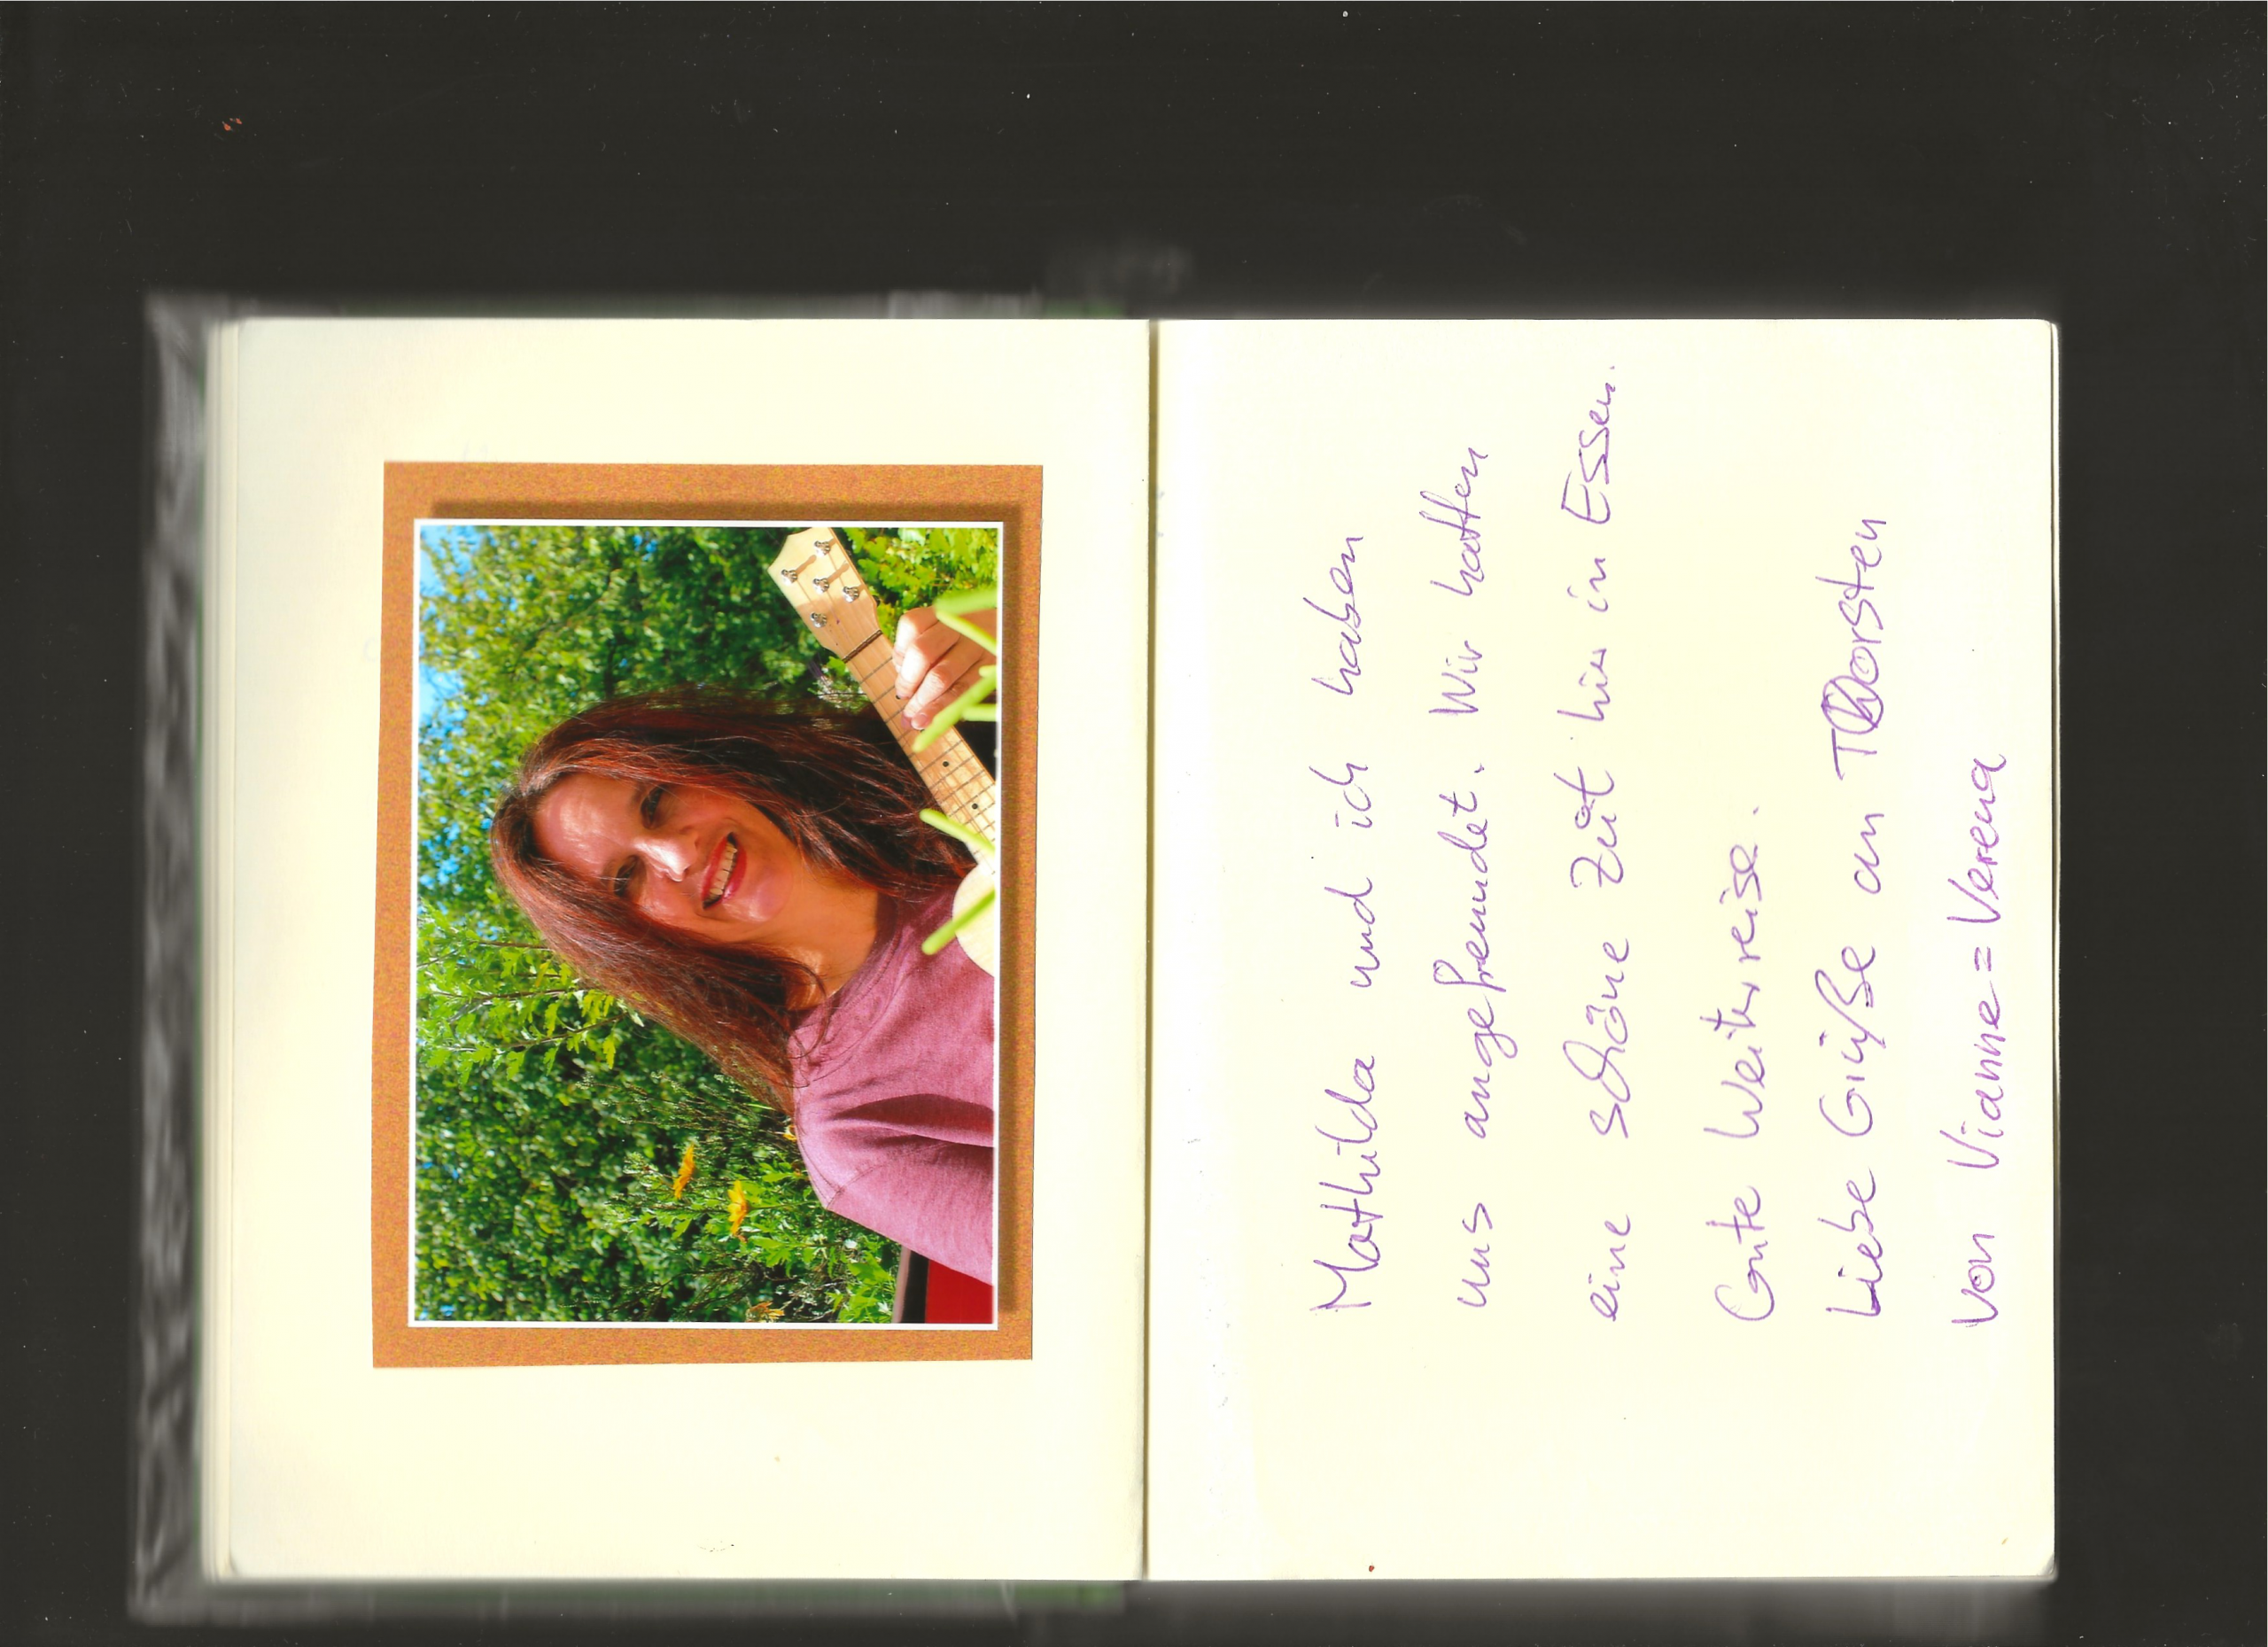 Mathilda und ich haben
uns angefreundet. Wir hatten
eine schöne Zeit hier in Essen.
Gute Weiterreise.
Liebe Grüße an Thorsten
von Vianne = Verena